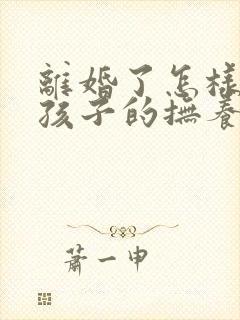 離婚了怎樣
孩子的撫養
蕭一申